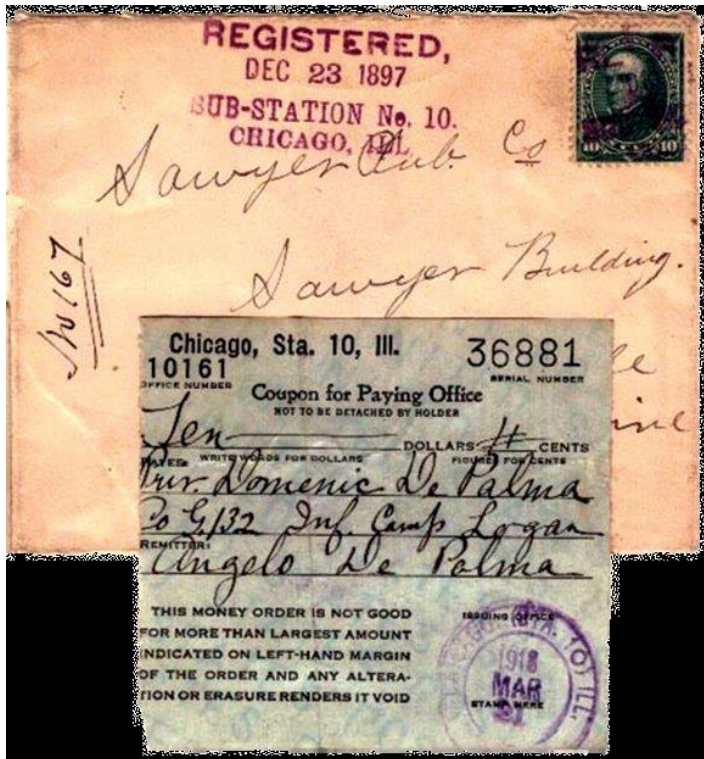 REGISTERED,
DEC 23 1897
SUB-STATION No. 10.
CHICAGO, ILL
10 10
Sawyer Pub. Co
Sawyer Building.
No 167
Chicago, Sta. 10, Ill. 36881
10161 SERIAL NUMBER
OFFICE NUMBER
Coupon for Paying Office
NOT TO BE DETACHED BY HOLDER
Ten DOLLARS CENTS
WRITE WORDS FOR DOLLARS FIGURES FOR CENTS
Priv. Domenic De Palma
Co G. 132 Inf. Camp Logan
REMITTER:
Angelo De Palma
THIS MONEY ORDER IS NOT GOOD
FOR MORE THAN LARGEST AMOUNT
INDICATED ON LEFT-HAND MARGIN
OF THE ORDER AND ANY ALTERA-
TION OR ERASURE RENDERS IT VOID
ISSUING OFFICE
CHICAGO (STA. 10) ILL.
1918
MAR
STAMP HERE